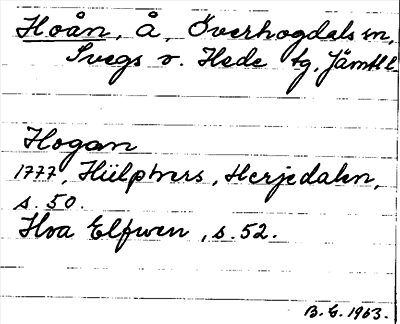 Hoån, Å, Överhogdals sn,
Svegs o. Hede tg, Jämtl l.
Hogan
1777, Hülphers, Herjedalen,
s. 50.
Hoa Elfwen, s. 52.
B. G. 1963.